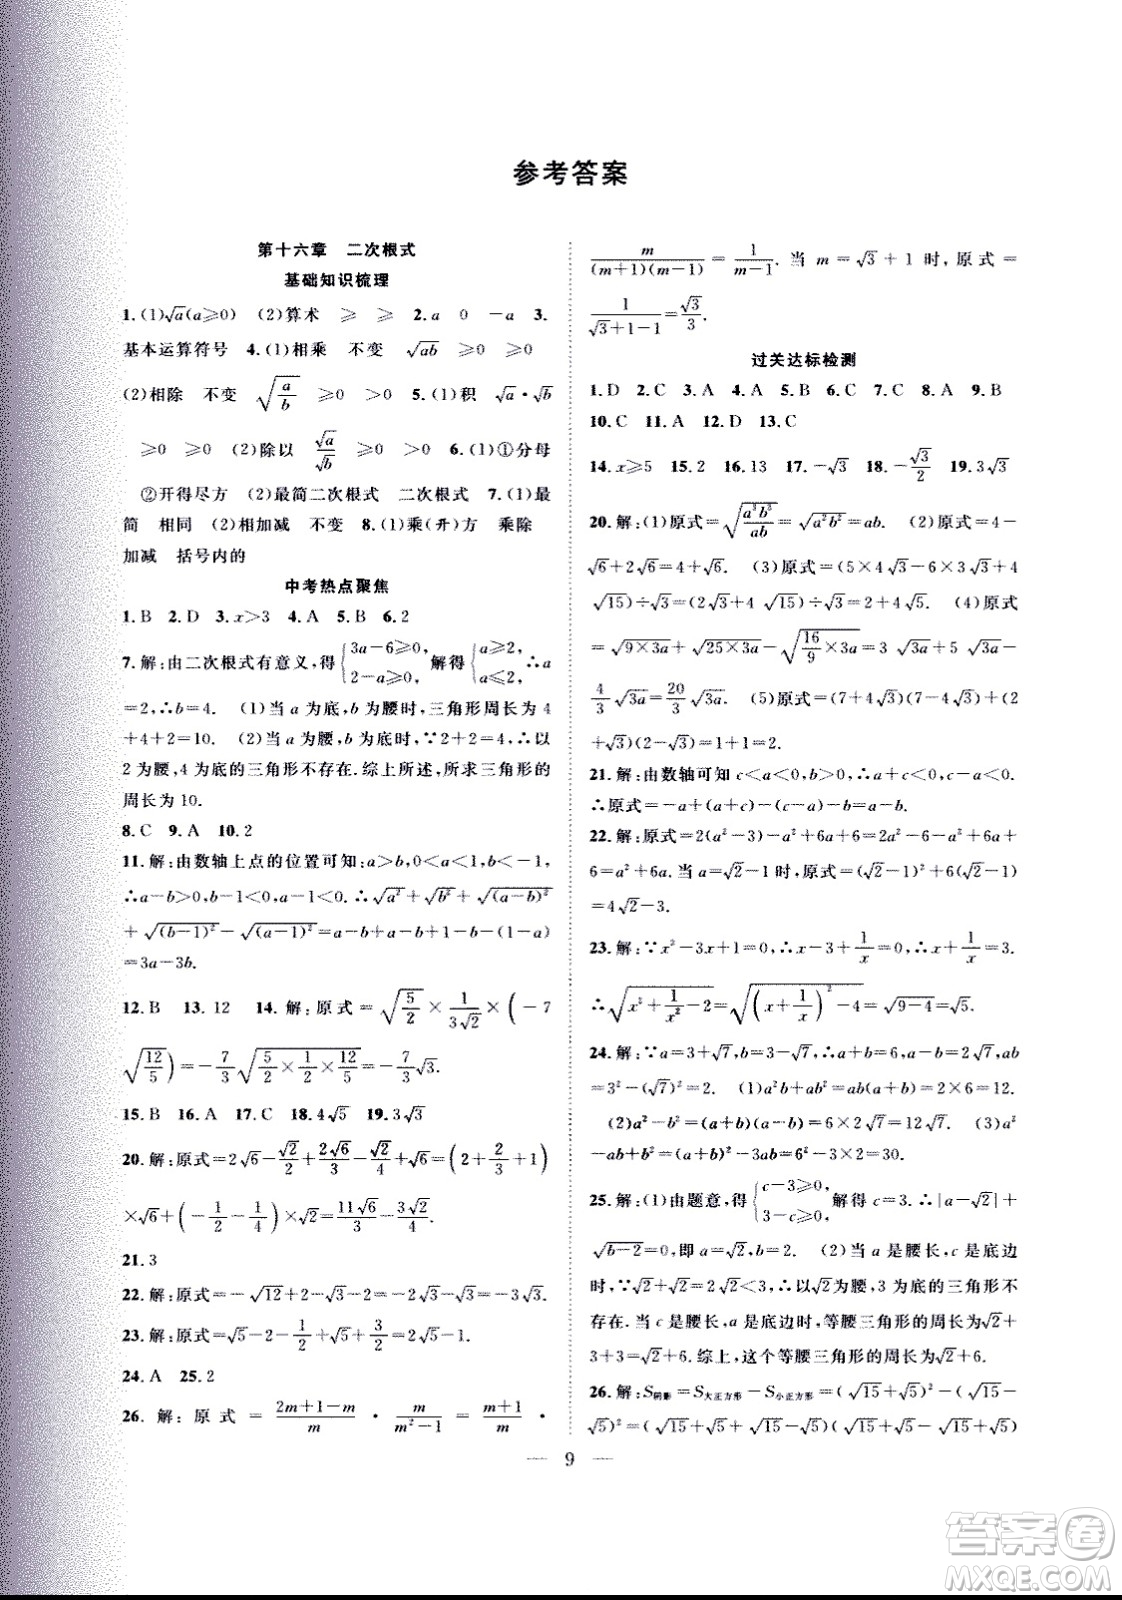 参考答案
第十六章 二次根式
基础知识梳理
1.(1)√a(a≥0) (2)算术 ≥ ≥ 2.a 0 -a 3.
基本运算符号 4.(1)相乘 不变 √ab ≥0 ≥0
(2)相除 不变 √(a/b) ≥0 >0 5.(1)积 √a·√b
≥0 ≥0 (2)除以 √a/√b ≥0 >0 6.(1)①分母
②开得尽方 (2)最简二次根式 二次根式 7.(1)最
简 相同 (2)相加减 不变 8.(1)乘(开)方 乘除
加减 括号内的
中考热点聚焦
1.B 2.D 3.x>3 4.A 5.B 6.2
7.解:由二次根式有意义,得{3a-6≥0, 2-a≥0, 解得{a≥2, a≤2. ∴a
=2,∴b=4. (1)当a为底,b为腰时,三角形周长为4
+4+2=10. (2)当a为腰,b为底时,∵2+2=4,∴以
2为腰,4为底的三角形不存在.综上所述,所求三角形的
周长为10.
8.C 9.A 10.2
11.解:由数轴上点的位置可知:a>b,0<a<1,b<-1,
∴a-b>0,b-1<0,a-1<0.∴√a²+√b²+√(a-b)²
+√(b-1)²-√(a-1)²=a-b+a-b+1-b-(1-a)
=3a-3b.
12.B 13.12 14.解:原式=√(5/2)×1/(3√2)×(-7
√(12/5))=-7/3√(5/2×1/2×12/5)=-7/3√3.
15.B 16.A 17.C 18.4√5 19.3√3
20.解:原式=2√6-√2/2+2√6/3-√2/4+√6=(2+2/3+1)
×√6+(-1/2-1/4)×√2=11√6/3-3√2/4.
21.3
22.解:原式=-√12+2-√3-2=-2√3-√3=-3√3.
23.解:原式=√5-2-1/2+√5+3/2=2√5-1.
24.A 25.2
26.解:原式=(2m+1-m)/m·m/(m²-1)=(m+1)/m·
m/((m+1)(m-1))=1/(m-1).当m=√3+1时,原式=
1/(√3+1-1)=√3/3.
过关达标检测
1.D 2.C 3.A 4.A 5.B 6.C 7.C 8.A 9.B
10.C 11.A 12.D 13.C
14.x≥5 15.2 16.13 17.-√3 18.-√3/2 19.3√3
20.解:(1)原式=√(a³b³/ab)=√a²b²=ab. (2)原式=4-
√6+2√6=4+√6. (3)原式=(5×4√3-6×3√3+4
√15)÷√3=(2√3+4√15)÷√3=2+4√5. (4)原式
=√(9×3a)+√(25×3a)-√(16/9×3a)=3√3a+5√3a-
4/3√3a=20/3√3a. (5)原式=(7+4√3)(7-4√3)-(2
+√3)(√3-2)=1+1=2.
21.解:由数轴可知c<a<0,b>0,∴a+c<0,c-b<0.
∴原式=-a+(a+c)-(c-b)-b=-a+a+c-c+b-b=0.
22.解:原式=2(a²-3)-a²+6a+6=2a²-6-a²+6a+
6=a²+6a.当a=√2-1时,原式=(√2-1)²+6(√2-1)
=4√2-3.
23.解:∵x²-3x+1=0,∴x-3+1/x=0,∴x+1/x=3.
∴√(x²+1/x²-2)=√((x+1/x)²-4)=√(9-4)=√5.
24.解:∵a=3+√7,b=3-√7,∴a+b=6,a-b=2√7,ab
=3²-(√7)²=2. (1)a²b+ab²=ab(a+b)=2×6=12.
(2)a²-b²=(a+b)(a-b)=6×2√7=12√7. (3)a²
-ab+b²=(a+b)²-3ab=6²-3×2=30.
25.解:(1)由题意,得{c-3≥0, 3-c≥0, 解得c=3.∴|a-√2|+
√(b-2)=0,即a=√2,b=2. (2)当a是腰长,c是底边
时,∵√2+√2=2√2<3,∴以√2为腰,3为底的三角形不
存在.当c是腰长,a是底边时,等腰三角形的周长为√2+
3+3=√2+6.综上,这个等腰三角形的周长为√2+6.
26.解:S阴影=S大正方形-S小正方形=(√15+√5)²-(√15-
√5)²=(√15+√5+√15-√5)(√15+√5-√15+
— 9 —
答案卷
MXQE.COM